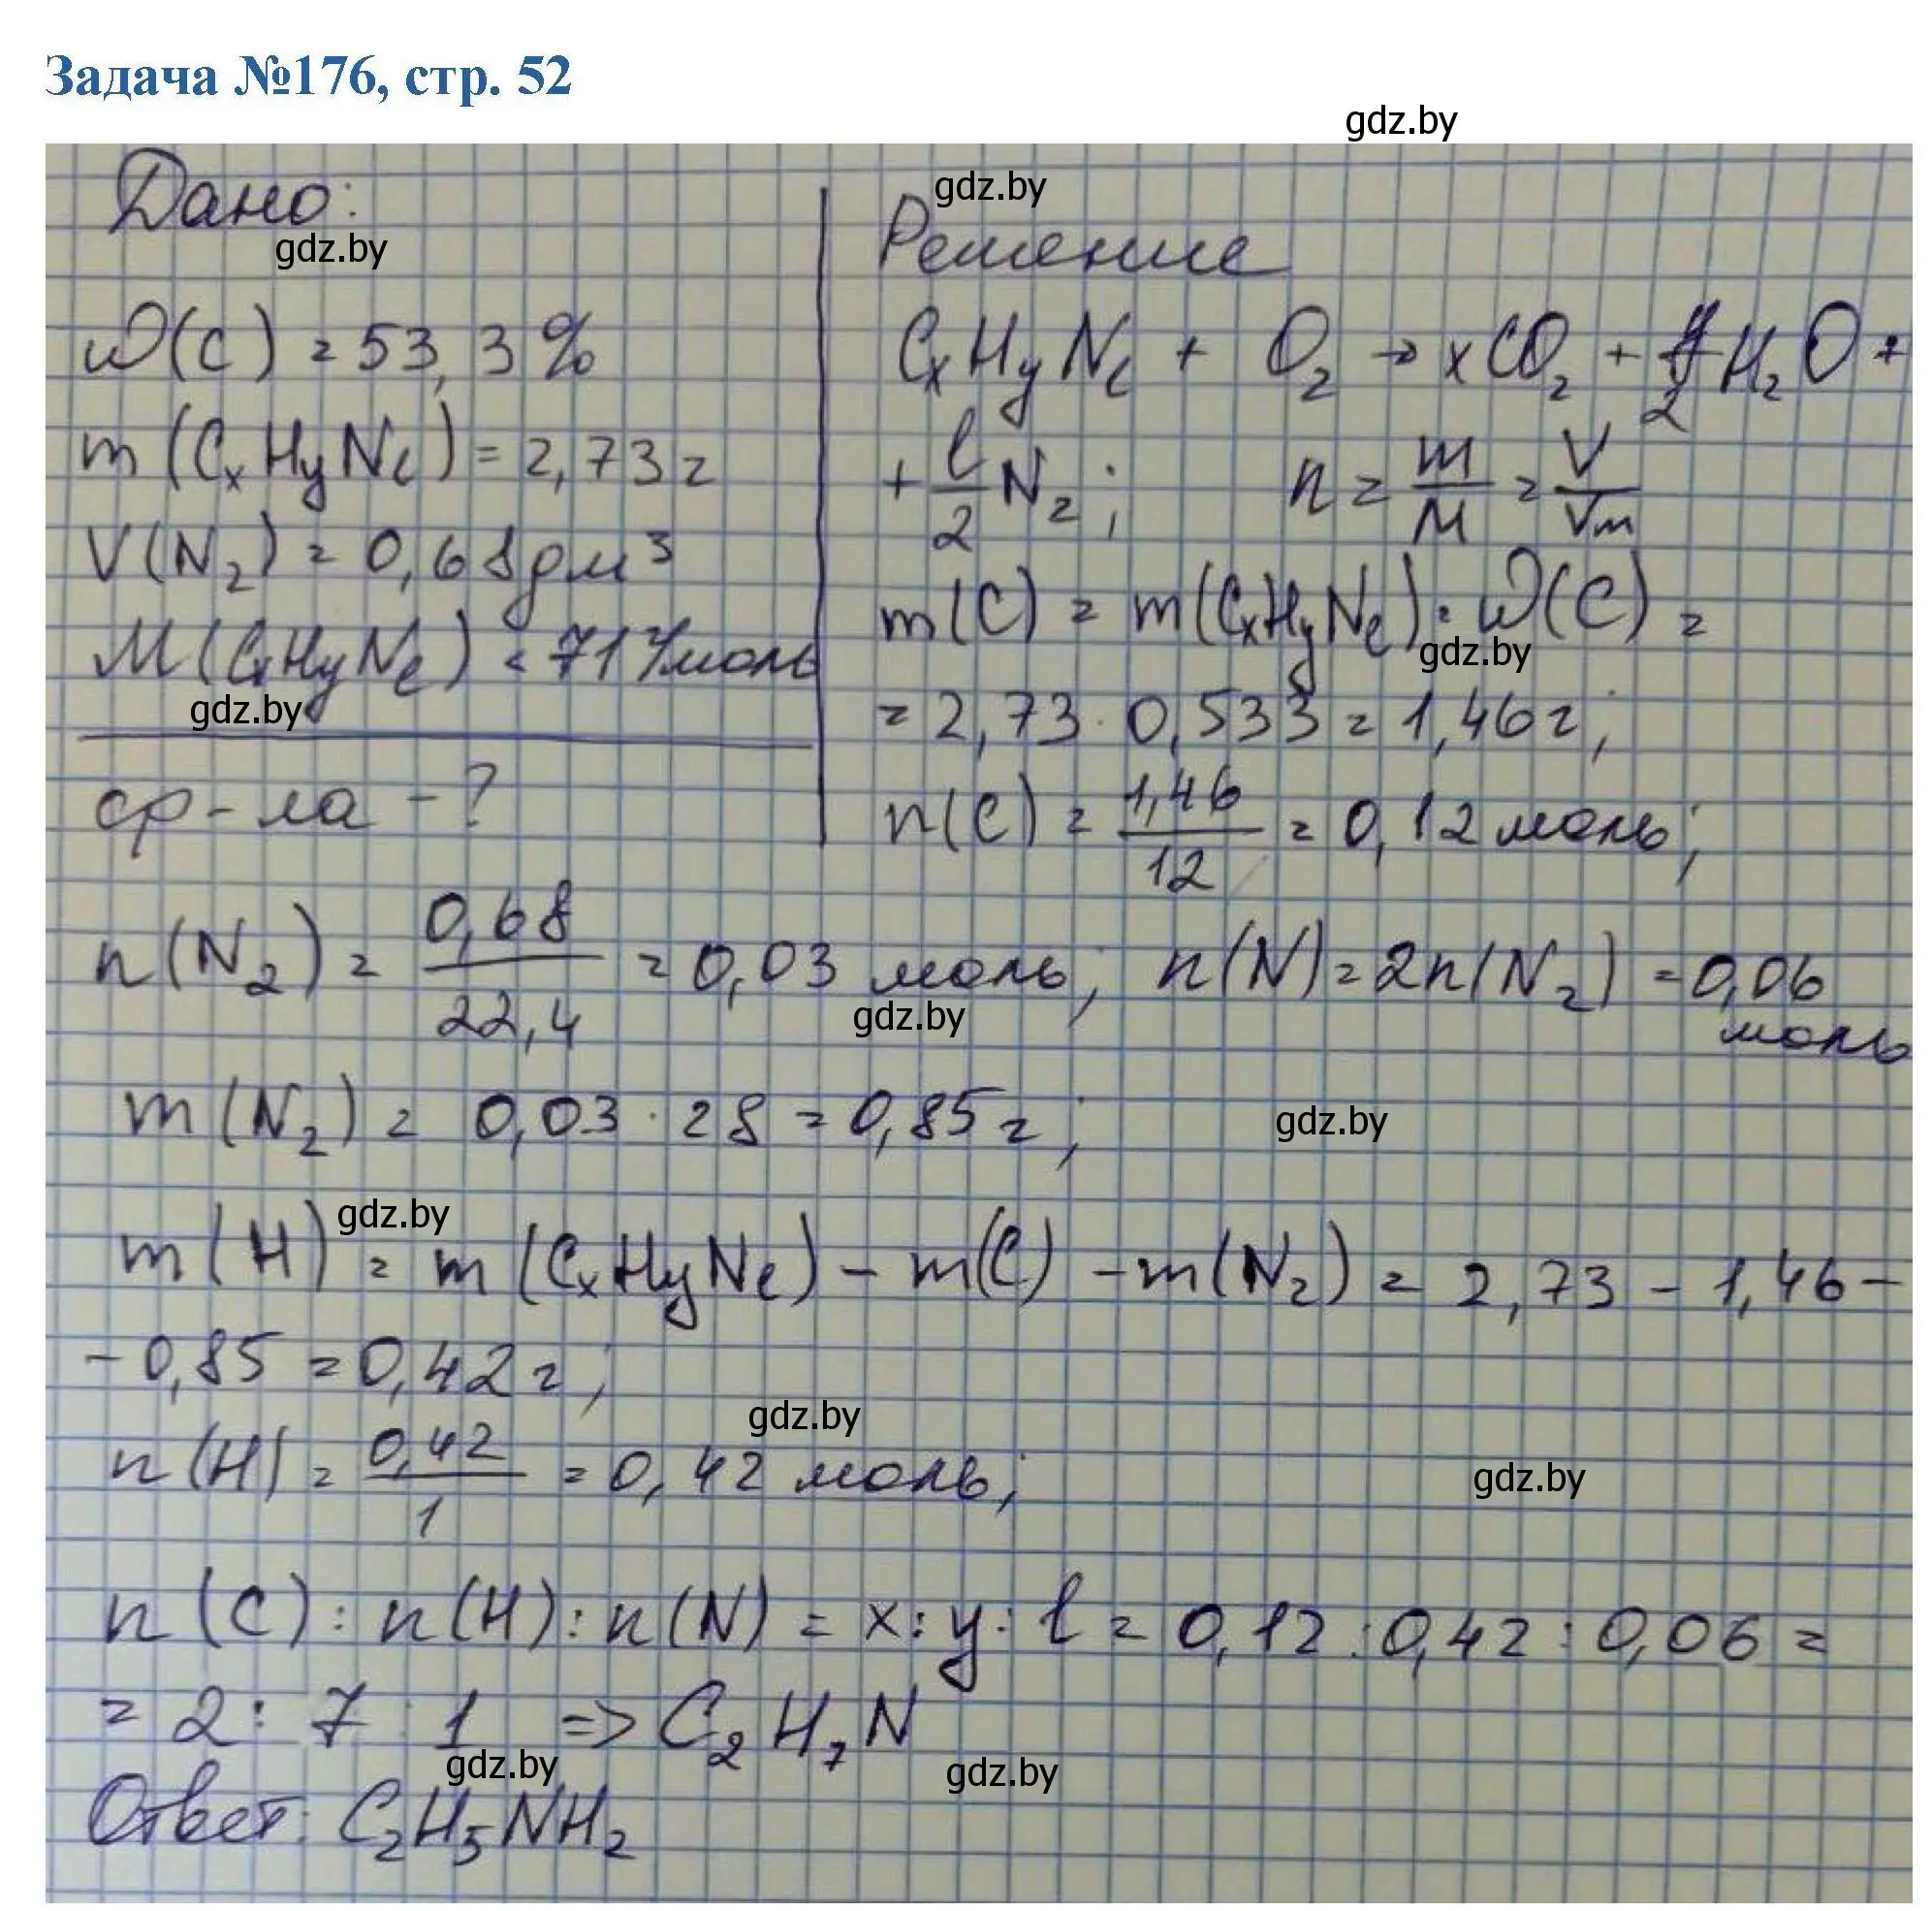 Задача №176, стр. 52
gdz.by
Дано:
gdz.by
ω(C) = 53,3%
m(CxHyNl) = 2,73 г
V(N₂) = 0,68 дм³
M(CxHyNl) < 71 г/моль
gdz.by
ф-ла - ?
gdz.by
Решение
CxHyNl + O₂ → xCO₂ + y/2 H₂O +
+ l/2 N₂; n = m/M = V/Vm
m(C) = m(CxHyNl) · ω(C) =
gdz.by
= 2,73 · 0,533 = 1,46 г;
n(C) = 1,46/12 = 0,12 моль;
n(N₂) = 0,68/22,4 = 0,03 моль; n(N) = 2n(N₂) = 0,06 моль
gdz.by
m(N₂) = 0,03 · 28 = 0,85 г;
gdz.by
gdz.by
m(H) = m(CxHyNl) - m(C) - m(N₂) = 2,73 - 1,46 -
- 0,85 = 0,42 г;
gdz.by
n(H) = 0,42/1 = 0,42 моль;
gdz.by
n(C) : n(H) : n(N) = x : y : l = 0,12 : 0,42 : 0,06 =
= 2 : 7 : 1 => C₂H₇N
gdz.by gdz.by
Ответ: C₂H₅NH₂